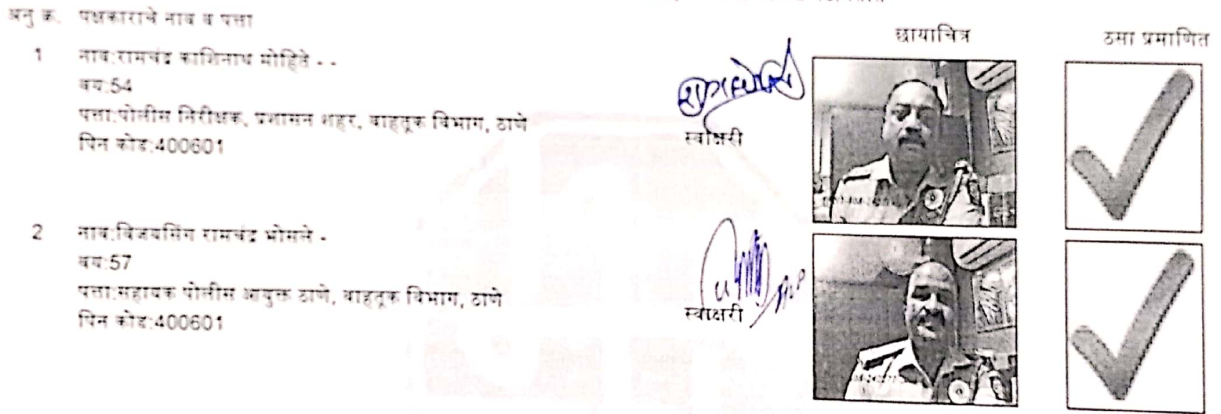 अनु क्र. पक्षकाराचे नाव व पत्ता
छायाचित्र
ठसा प्रमाणित
1 नाव:रामचंद्र काशिनाथ मोहिते - -
वय:54
पत्ता:पोलीस निरीक्षक, प्रशासन शहर, वाहतूक विभाग, ठाणे
पिन कोड:400601
स्वाक्षरी
2 नाव:विजयसिंग रामचंद्र भोसले -
वय:57
पत्ता:सहायक पोलीस आयुक्त ठाणे, वाहतूक विभाग, ठाणे
पिन कोड:400601
स्वाक्षरी